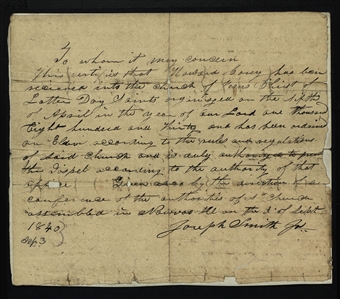 To whom it may concern
This certifies that Howard Corey has been
received into the Church of Jesus Christ of
Latter Day Saints organized on the sixth
of April in the year of our Lord one thousand
Eight hundred and Thirty and has been ordained
an Elder according to the rules and regulations
of said Church and is duly authorized to preach
the Gospel according to the authority of that
office Given by the direction of a
conference of the authorities of Church
assembled in on the 3 of Sept
1840
Sep. 3 Joseph Smith Jr.